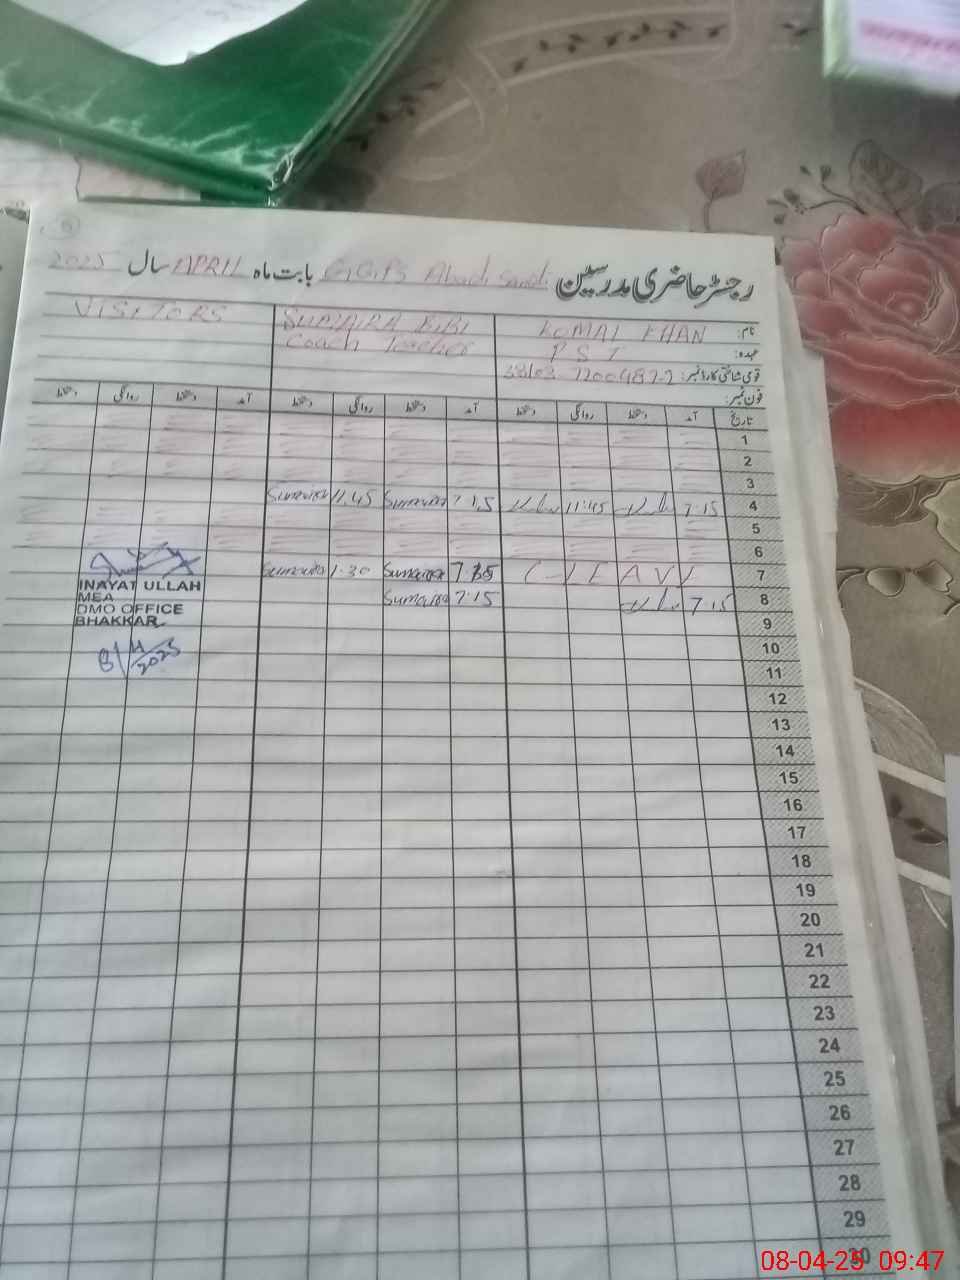 رجسٹر حاضری مدرسین G.G.P/S Abadi بابت ماہ APRIL سال 2025
نام: KOMAL KHAN SUMAIRA BIBI VISITORS
عہدہ: P S T Coach Teacher
قومی شناختی کارڈ نمبر:
فون نمبر:
تاریخ آمد دستخط روانگی دستخط آمد دستخط روانگی دستخط آمد دستخط روانگی دستخط
1
2
3
4 7:15 11:45 7:15 Sumaira 11:45 Sumaira
5
6
7 C-LEAVE 7:15 Sumaira 1:30 Sumaira
8 7:15 7:15 Sumaira
9
10
11
12
13
14
15
16
17
18
19
20
21
22
23
24
25
26
27
28
29
30
INAYAT ULLAH
MEA
DMO OFFICE
BHAKKAR
8/4/2025
08-04-25 09:47